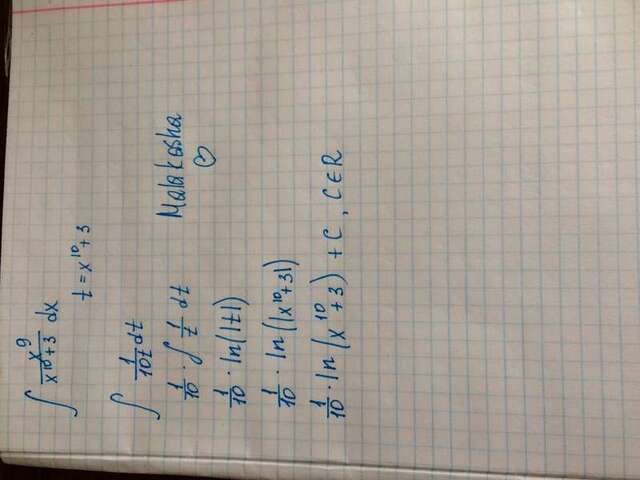 ∫ x⁹/(x¹⁰+3) dx
t = x¹⁰+3
∫ 1/(10t) dt
1/10 · ∫ 1/t dt
Malakasha
♡
1/10 · ln(|t|)
1/10 · ln(|x¹⁰+3|)
1/10 · ln(x¹⁰+3) + C, C∈R